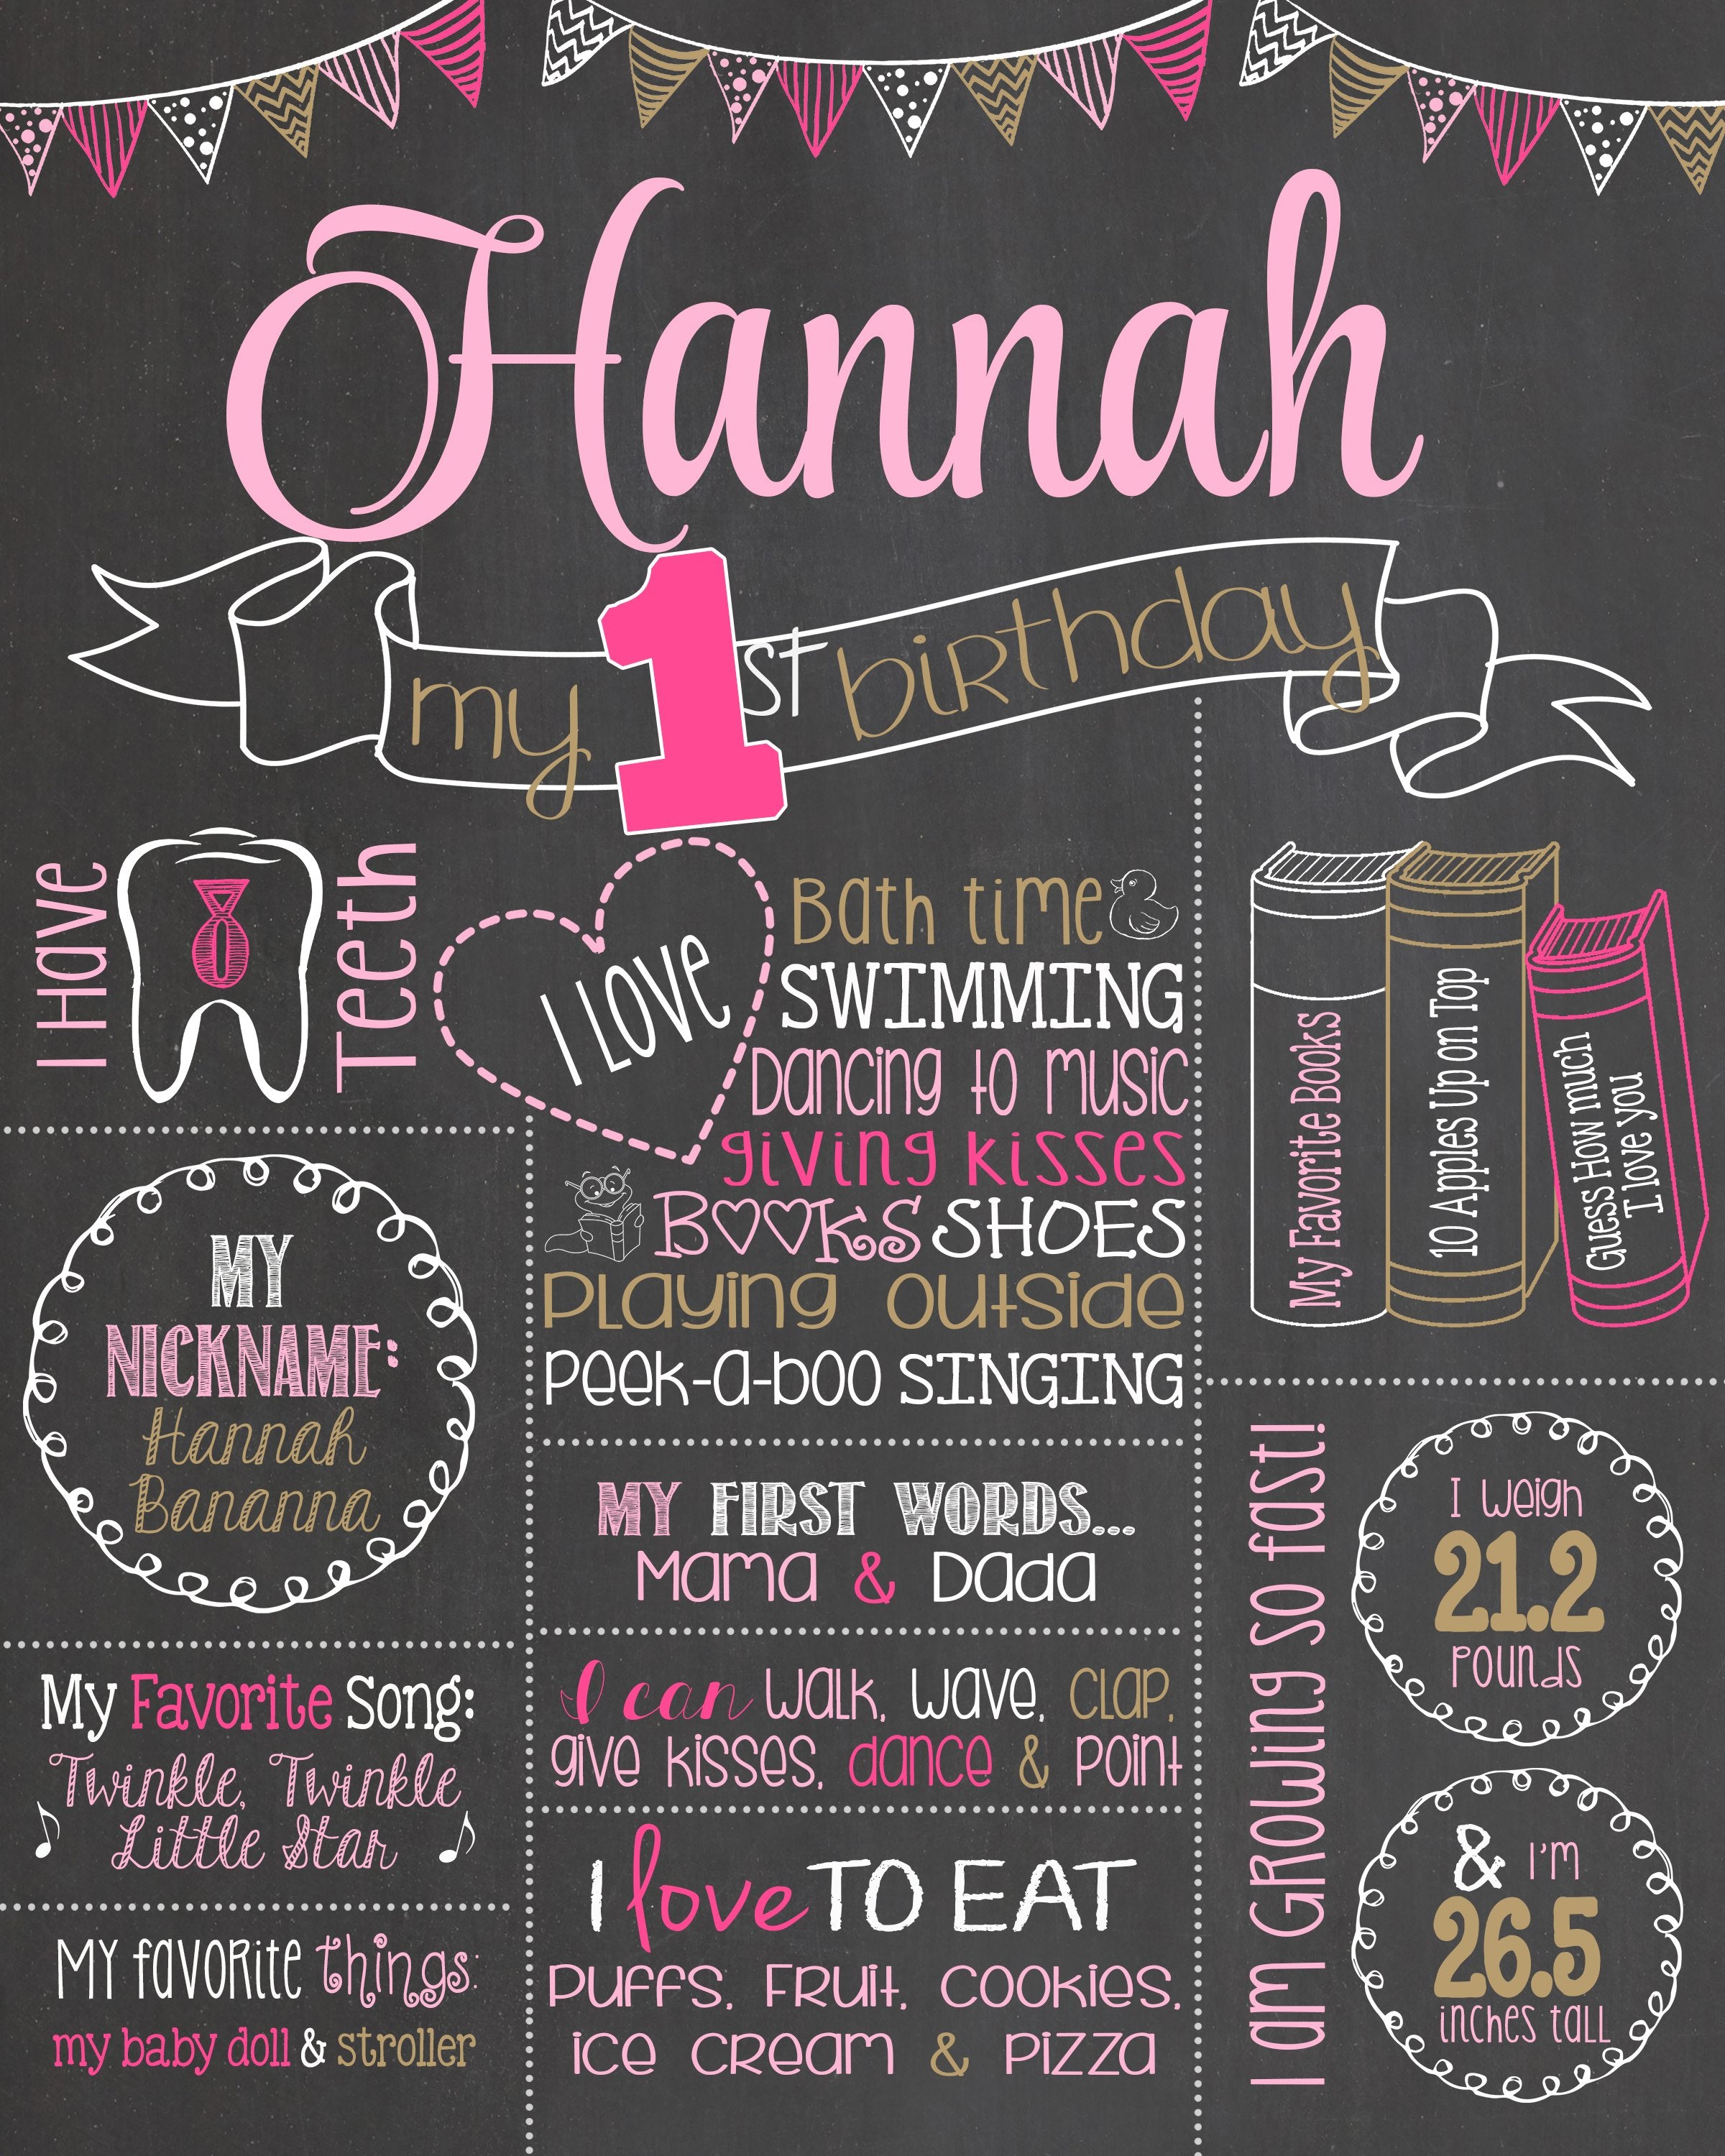 Hannah
my 1st birthday
I Have 8 Teeth
I LOVE
Bath time &
SWIMMING
Dancing to music
giving kisses
BOOKS SHOES
Playing outside
Peek-a-boo SINGING
My Favorite Books
10 Apples Up on Top
Guess How much
I love you
MY
NICKNAME:
Hannah
Bananna
MY FIRST WORDS...
Mama & Dada
My Favorite Song:
Twinkle, Twinkle
Little Star
I can walk, wave, clap,
give kisses, dance & point
MY favorite things:
my baby doll & stroller
I LOVE TO EAT
Puffs, Fruit, cookies,
ice cream & pizza
I am Growing so fast!
I weigh
21.2
pounds
& I'm
26.5
inches tall